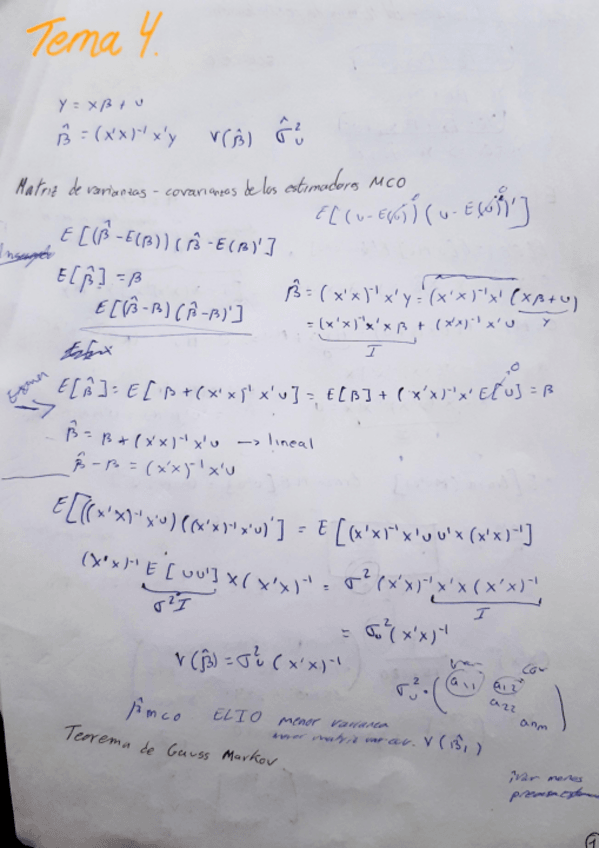 Tema 4.
Y = Xβ + U
β̂ = (X'X)⁻¹ X'Y V(β̂) σ̂²ᵤ
Matriz de varianzas - covarianzas de los estimadores MCO
E[(U - E(U))(U - E(U))'] 0 0
E[(β̂ - E(β))(β̂ - E(β)']
E[β̂] = β
E[(β̂ - β)(β̂ - β)']
β̂ = (X'X)⁻¹ X'Y = (X'X)⁻¹ X' (Xβ + U)
= (X'X)⁻¹ X'Xβ + (X'X)⁻¹ X'U Y
I
Examen
E[β̂] = E[β + (X'X)⁻¹ X'U] = E[β] + (X'X)⁻¹ X' E[U] = β 0
β̂ = β + (X'X)⁻¹ X'U → lineal
β̂ - β = (X'X)⁻¹ X'U
E[((X'X)⁻¹ X'U)((X'X)⁻¹ X'U)'] = E[(X'X)⁻¹ X'UU'X (X'X)⁻¹]
(X'X)⁻¹ E[UU'] X(X'X)⁻¹ = σ² (X'X)⁻¹ X'X (X'X)⁻¹
σ²I I
= σᵤ² (X'X)⁻¹
V(β̂) = σ²ᵤ (X'X)⁻¹
var cov
σᵤ² · ( a₁₁ a₁₂
a₂₂
aₙₘ )
β̂ MCO ELIO menor varianza
matriz var cov. V(β̂₁)
Teorema de Gauss Markov.
¡Var menos
1